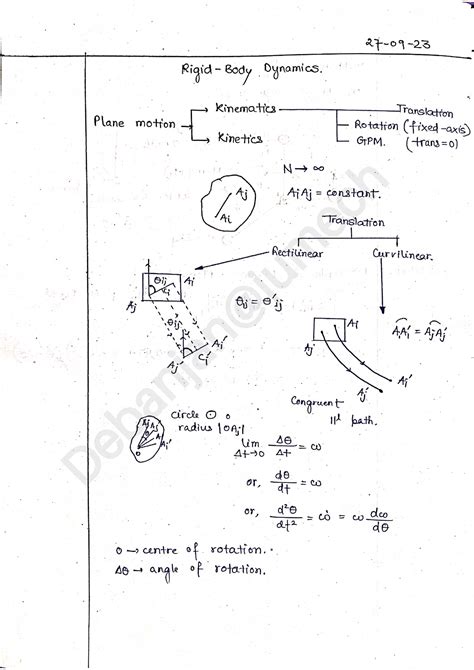 27-09-23
Rigid-Body Dynamics.
Plane motion
Kinematics
Kinetics
Translation
Rotation (fixed-axis)
GPM. (trans=0)
Aj
Ai
N → ∞
AiAj = constant.
Translation
Rectilinear
Curvilinear.
θij
Ai
Ci
Aj
θij
Ai'
Ci'
Aj'
θij = θ'ij
Ai
Aj
AiAi' = AjAj'
Ai'
Aj'
Congruent
11l path.
Aj
Ai
Ai'
O
circle ⊙ O
radius |OAj|
lim Δt→0 Δθ/Δt = ω
or, dθ/dt = ω
or, d²θ/dt² = ω̇ = ω dω/dθ
O → centre of rotation.
Δθ → angle of rotation.
Debanjan@jumech